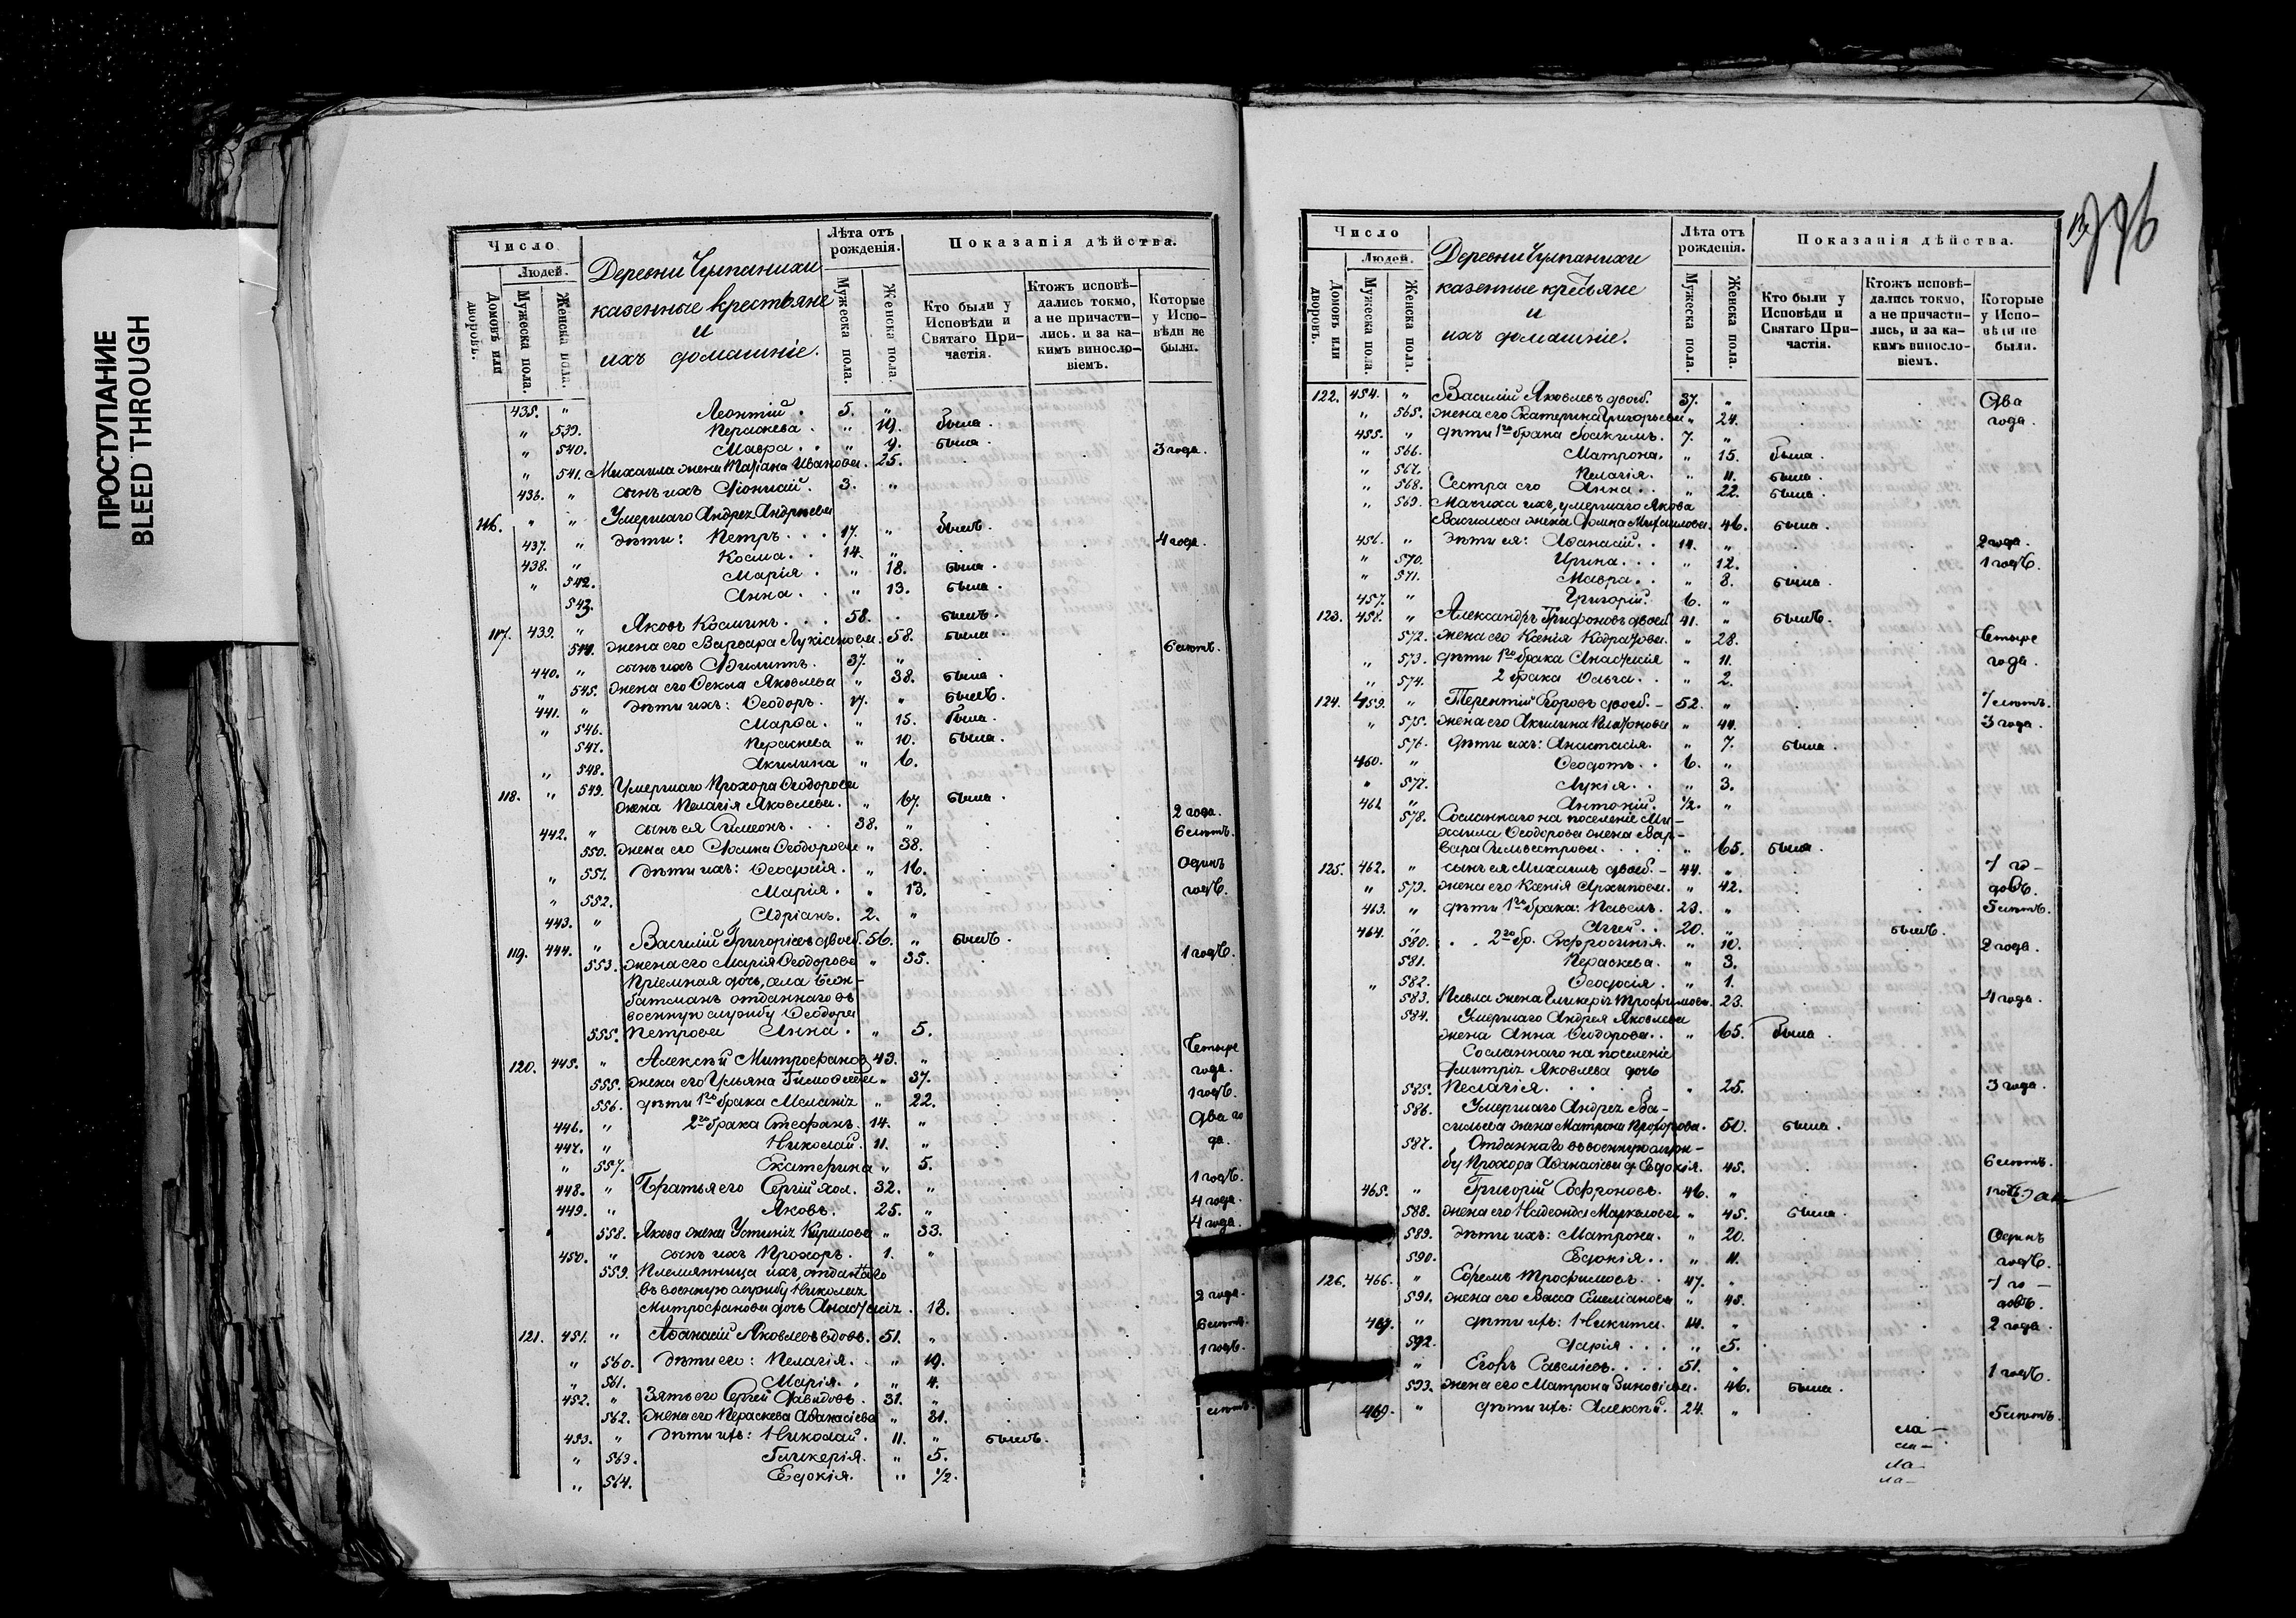 ПРОСТУПАНИЕ
BLEED THROUGH
Число
Людей.
Домовъ или дворовъ.
Мужеска пола.
Женска пола.
Деревни Чулпанихи
казенные крестьяне
и
ихъ домашніе.
Лѣта отъ рожденія.
Мужеска пола.
Женска пола.
Показанія дѣйства.
Кто были у Исповѣди и Святаго При-частія.
Ктожъ исповѣ-дались токмо, а не причасти-лись. и за ка-кимъ винослo-віемъ.
Которые у Испо-вѣди не были.
435. " Леонтій . 5. "
" 539. Параскева . " 19. была .
" 540. Мавра . . " 9. была . 3 года.
" 541. Михаила жена Татіана Иванова. 25.
436. " сынъ ихъ Діонисій. 3. "
116. " " Умершаго Андрея Андреева
437. " дѣти: Петръ . . . 17. " былъ . 4 года.
438. " Косма . . 14. "
" 542. Марія . " 18. была .
543. Анна . . " 13. была .
117. 439. " Яковъ Космичъ . . . 58. . былъ .
544. жена его Варвара Лукіанова. 58. была . 6 лѣтъ.
440. " сынъ ихъ Филиппъ. 37. "
" 545. жена его Ѳекла Яковлева " 38. была .
441. " дѣти ихъ: Ѳеодоръ. 17. " былъ.
" 546. Марѳа. " 15. была.
547. Параскева " 10. была.
" 548. Акилина " 6.
118. " 549. Умершаго Прохора Ѳеодорова
жена Пелагія Яковлева. " 67. была . 2 года.
442. " сынъ ея Симеонъ. . . 38. " 6 лѣтъ.
550. жена его Домна Ѳеодорова " 38. Одинъ
" 551. дѣти ихъ: Ѳеодосія. " 16. годъ.
" 552. Марія. " 13.
443. " Адріанъ. 2. "
119. 444. " Василій Григорьевъ двоеб. 56. " былъ. 1 годъ.
553. жена его Марія Ѳеодорова " 35.
Пріемная дочь, села
отданнаго въ
военную службу Ѳеодора
555. Петрова Анна . " 5.
120. 445. " Алексѣй Митрофановъ 43. " Четыре
555. жена его Ульяна Тимоѳеева " 37. года.
556. дѣти 1го брака Меланія " 22. 1 годъ.
446. " 2го брака Стефанъ. 14. " Два го
447. " Николай. 11. " да.
" 557. Екатерина " 5.
448. " Братья его Сергій хол. 32. " 1 годъ.
449. " Яковъ. 25. " 4 года.
558. Якова жена Устинія Кирилова " 33. 4 года.
450. " сынъ ихъ Прохоръ. 1. "
559. Племянница ихъ, отданнаго
въ военную службу Николая
Митрофанова дочь Анастасія . 18. 2 года.
121. 451. " Аѳанасій Яковлевъ вдовъ. 51. " 6 лѣтъ.
" 560. дѣти его: Пелагія. . " 19. 1 годъ.
" 561. Марія. . " 4.
452. " Зять его Сергѣй Давидовъ. 31. "
562. жена его Параскева Аѳанасіева " 31. лѣтъ.
453. " дѣти ихъ: Николай. 11. " былъ.
" 563. Гликерія. " 5.
" 564. Евдокія. " 1/2.
Число
Людей.
Домовъ или дворовъ.
Мужеска пола.
Женска пола.
Деревни Чулпанихи
казенные крестьяне
и
ихъ домашніе.
Лѣта отъ рожденія.
Мужеска пола.
Женска пола.
Показанія дѣйства.
Кто были у Исповѣди и Святаго При-частія.
Ктожъ исповѣ-дались токмо, а не причасти-лись, и за ка-кимъ винослo-віемъ.
Которые у Испо-вѣди не были.
122. 454. " Василій Яковлевъ двоеб. 37. " Два
" 565. жена его Екатерина Григорьева " 24. года.
455. " дѣти 1го брака Іоакимъ. 7. "
" 566. Матрона. " 15. была.
" 567. Пелагія. " 11. была.
" 568. Сестра его Анна . . " 22. была.
" 569. Мачиха ихъ, умершаго Якова
Васильева жена Домна Михаилова. 46. была .
456. " дѣти ея: Аѳанасій. . 14. " 2 года.
" 570. Ирина. . . " 12. 1 годъ.
" 571. Мавра. . " 8. была .
457. " Григорій. 6. "
123. 458. " Александръ Трифоновъ двоеб. 41. " былъ.
" 572. жена его Ксенія Кодратова. " 28. Четыре
" 573. дѣти 1го брака Анастасія " 11. года.
" 574. 2 брака Ольга. . " 2.
124. 459. " Терентій Егоровъ двоеб. - 52. " 7 лѣтъ.
" 575. жена его Акилина Платонова " 44. 3 года.
576. дѣти ихъ: Анастасія. " 7. была.
460. " Ѳеодотъ. . 6. "
" 577. Лукія. . " 3.
461. " Антоній. 1/2. "
578. Сосланнаго на поселеніе Ми-
хаила Ѳеодорова жена Вар-
вара Сильвестрова. . . . " 65. была .
125. 462. " сынъ ея Михаилъ двоеб. - 44. " 7 го-
" 579. жена его Ксенія Архипова. " 42. довъ.
463. " дѣти 1го брака: Павелъ. 23. " 5 лѣтъ.
464. " Аггей. . 20. " былъ.
580. . . 2го бр. Евфросинія. " 10. 2 года.
581. Параскева. " 3.
" 582. Ѳеодосія. " 1.
583. Павла жена Гликерія Трофимова. 23. 4 года.
584. Умершаго Андрея Яковлева
жена Анна Ѳеодорова. . " 65. была .
Сосланнаго на поселеніе
Димитрія Яковлева дочь
585. Пелагія. . . . . " 25. 3 года.
586. Умершаго Андрея Ва-
сильева жена Матрона Прохорова. 50. была.
587. Отданнаго въ военную служ-
бу Прохора Аѳанасіева д. Евдокія. 45. 6 лѣтъ.
465. " Григорій Софроновъ. 46. " 1 годъ.
588. жена его Надежда Маркелова " 45. была .
589. дѣти ихъ: Матрона. " 20. Одинъ
590. Евдокія. . " 11. годъ.
126. 466. " Ефремъ Трофимовъ. . 47. " 7 го-
591. жена его Васса Емеліанова " 45. довъ.
467. " дѣти ихъ: Никита. 14. " 2 года.
592. Дарія. . . " 5.
" Егоръ Савеліевъ. . . 51. " 1 годъ.
593. жена его Матрона Зиновіева. " 46. была .
469. " дѣти ихъ: Алексѣй. 24. " 5 лѣтъ.
ла-
ла-
ла-
ла-